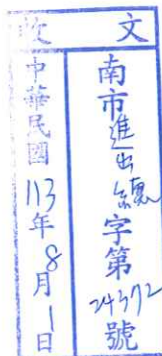 收文
南市進出總字第24372號
中華民國113年8月1日